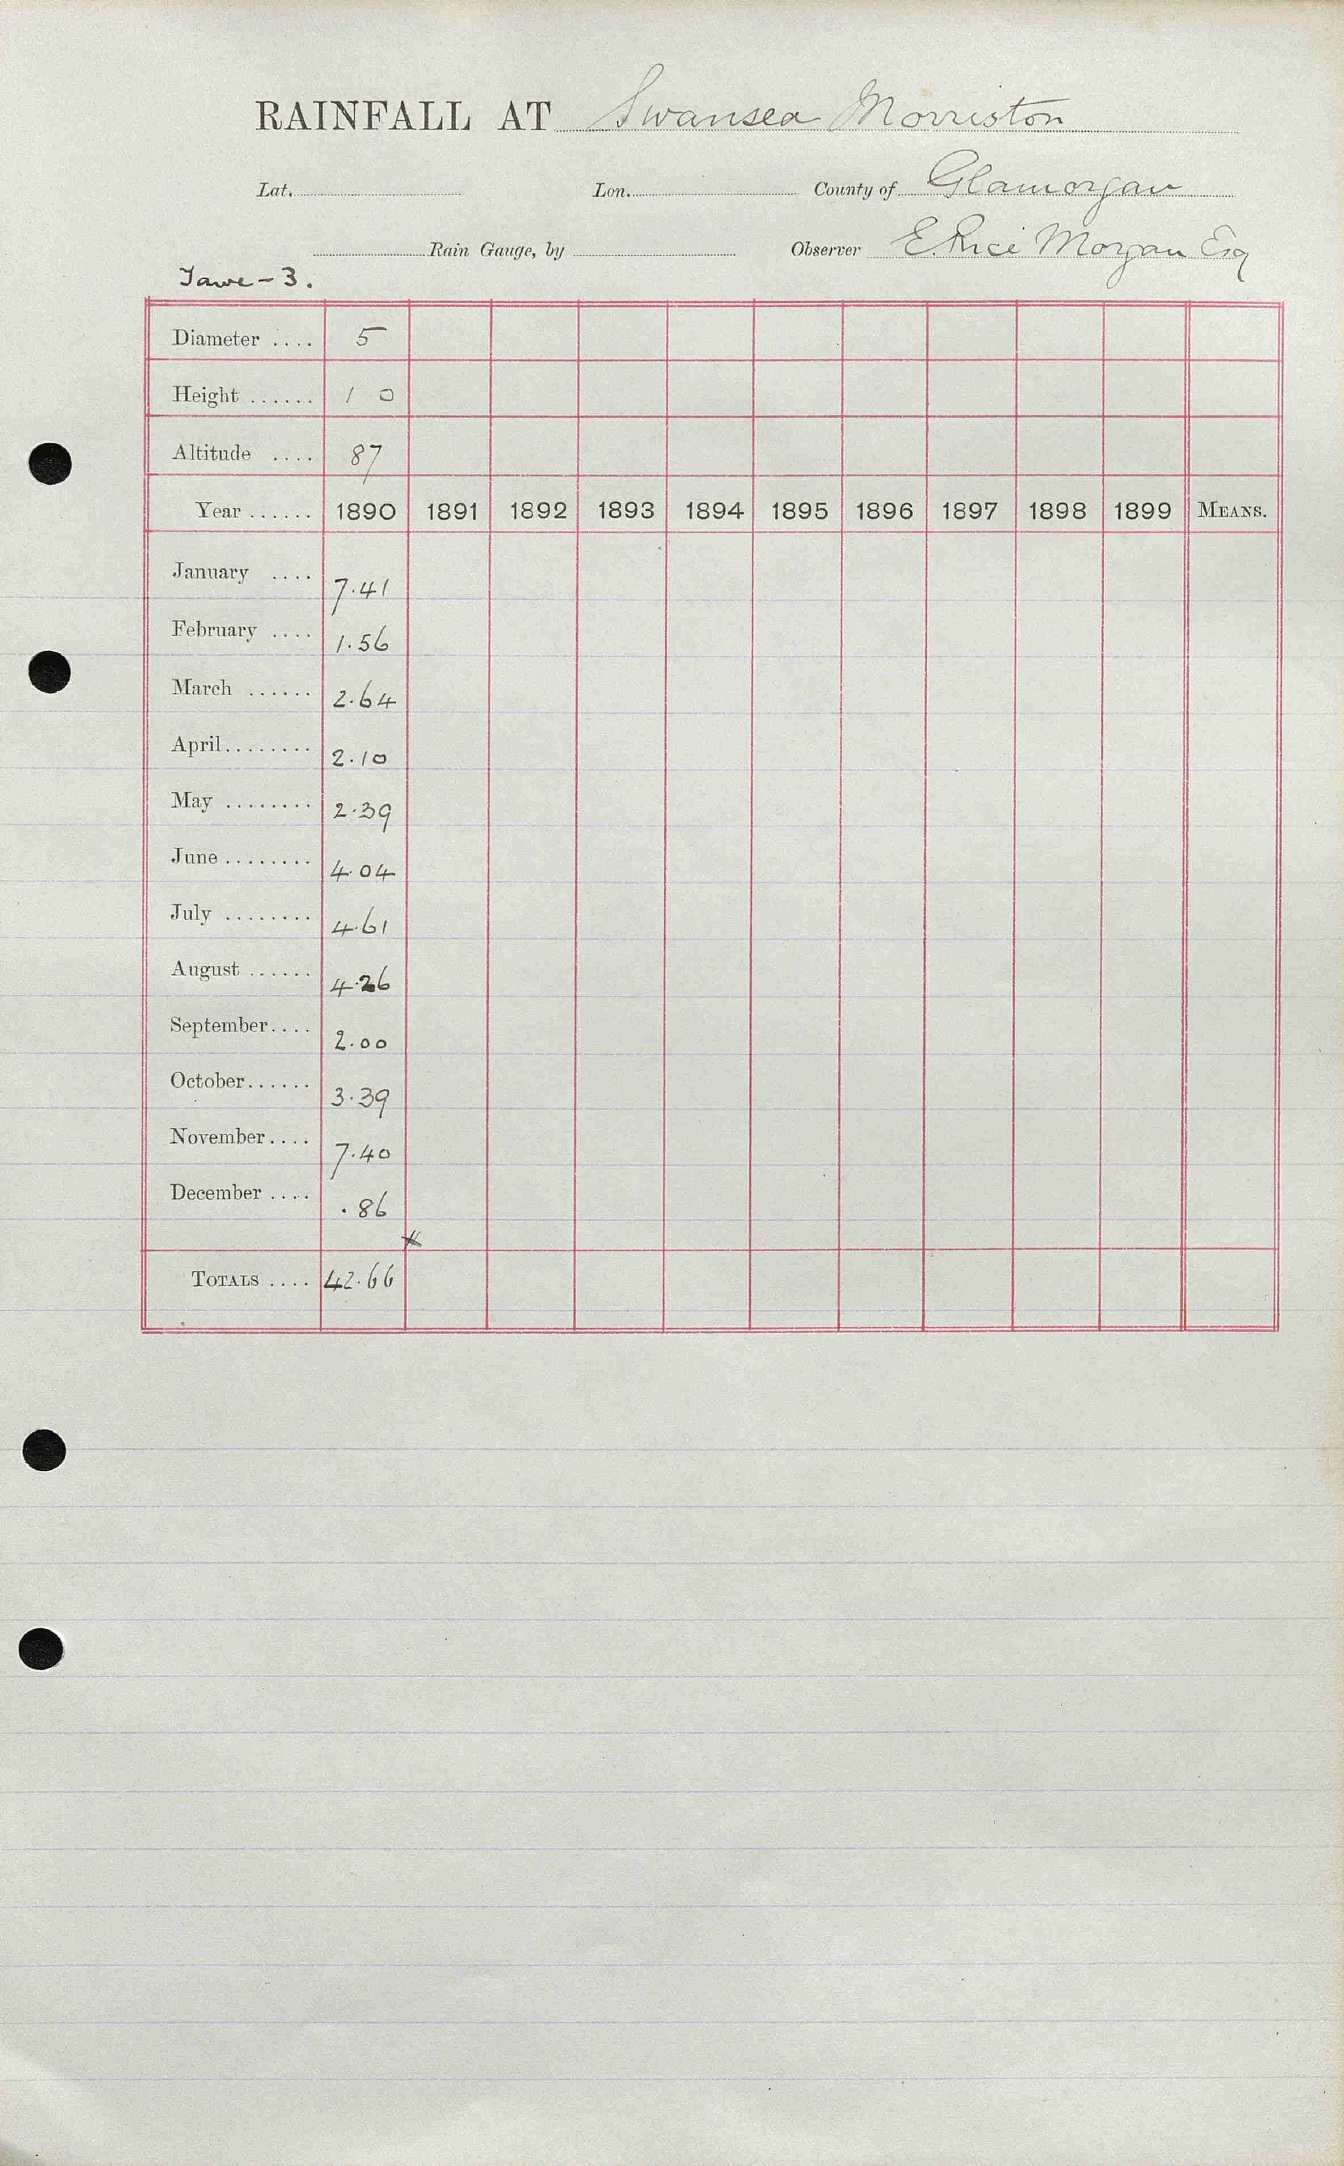 RAINFALL AT Swansea Morriston
Lat. Lon. County of Glamorgan
Rain Gauge, by Observer E. Rice Morgan Esq
Tawe - 3.
Diameter .... 5
Height ...... 1 0
Altitude .... 87
Year ...... 1890 1891 1892 1893 1894 1895 1896 1897 1898 1899 MEANS.
January .... 7.41
February .... 1.56
March ...... 2.64
April........ 2.10
May ........ 2.39
June ........ 4.04
July ........ 4.61
August ...... 4.26
September.... 2.00
October...... 3.39
November.... 7.40
December .... .86
TOTALS .... 42.66